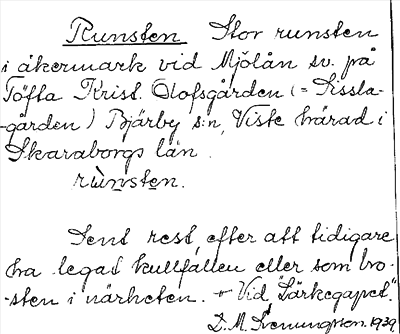 Runsten Stor runsten
i åkermark vid Mjölån sv. på
Töfta Krist. Olofsgården (= Sissla-
-gården) Bjärby s:n, Viste härad i
Skaraborgs län.
rùnsten.
Sent rest, efter att tidigare
ha legat kullfallen eller som bro-
-sten i närheten. + Vid "Lärkegapet".
D. M. Svenungsson. 1939